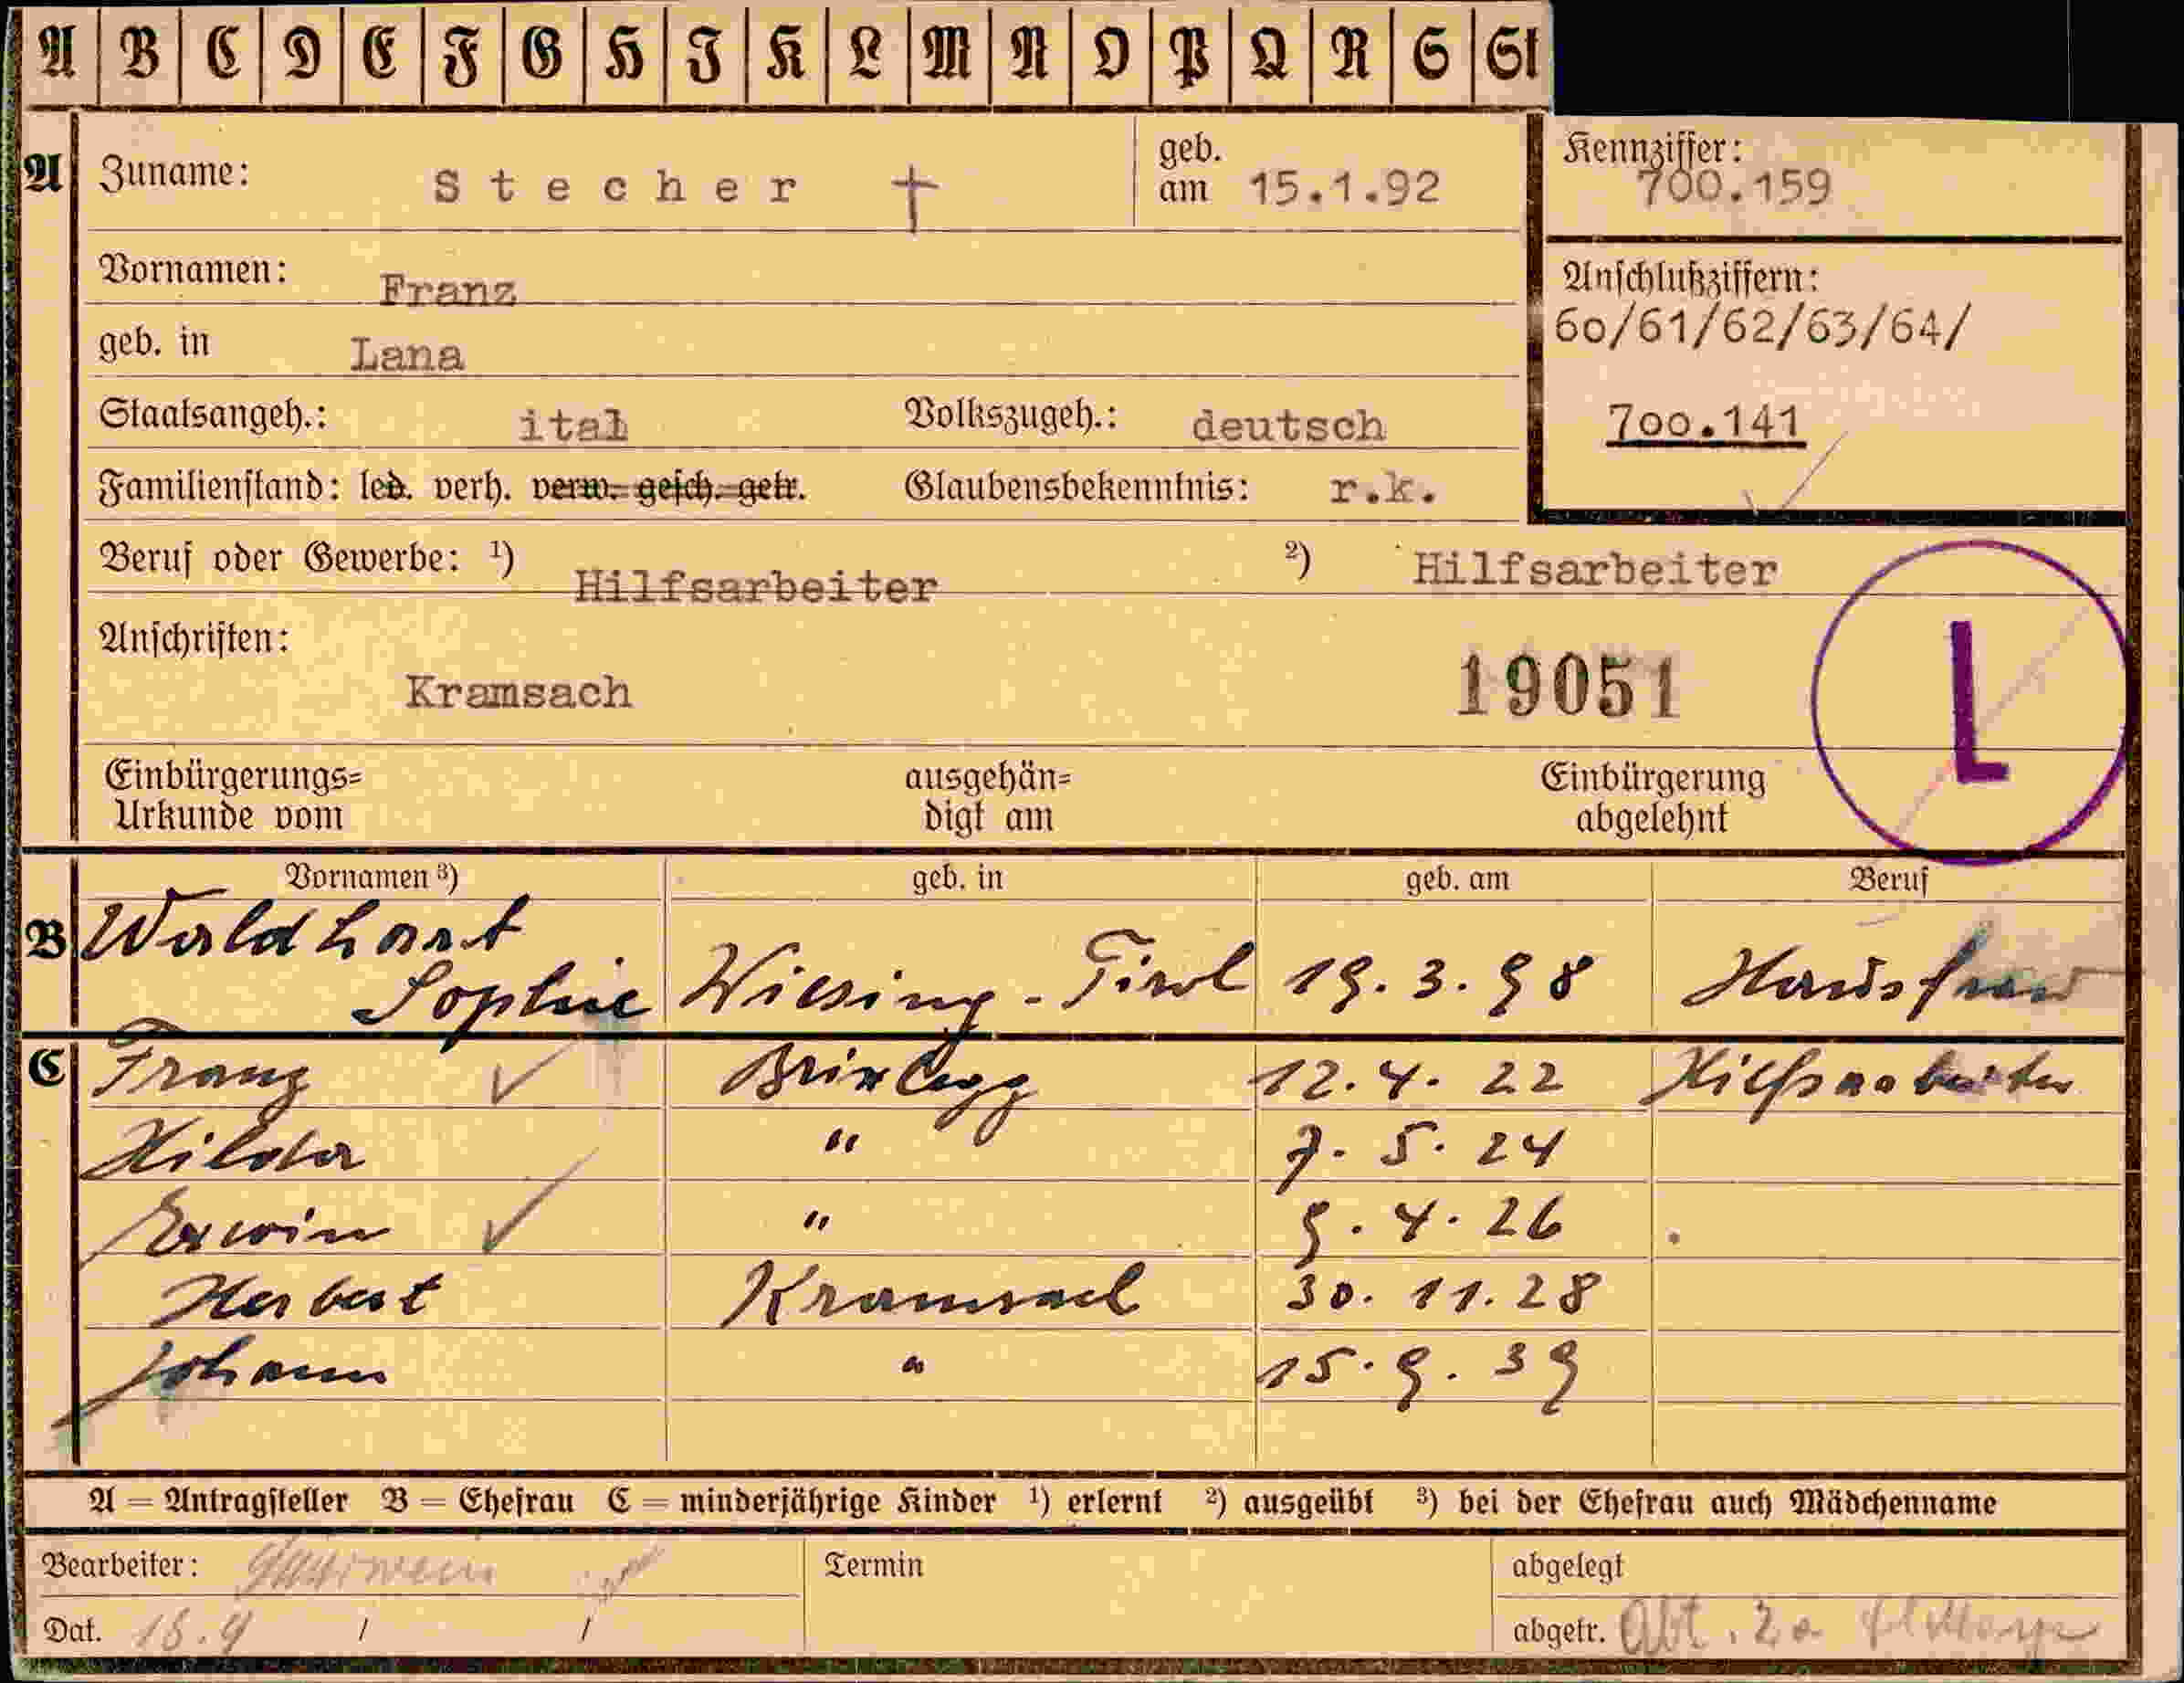 A B C D E F G H I K L M N O P Q R S St
A Zuname: Stecher † geb. am 15.1.92
Kennziffer: 700.159
Vornamen: Franz
Anschlußziffern:
60/61/62/63/64/
geb. in Lana
Staatsangeh.: ital Volkszugeh.: deutsch
700.141
Familienstand: led. verh. verw. gesch. getr. Glaubensbekenntnis: r.k.
Beruf oder Gewerbe: ¹) Hilfsarbeiter ²) Hilfsarbeiter
Anschriften:
Kramsach 19051 L
Einbürgerungs= ausgehän= Einbürgerung
Urkunde vom digt am abgelehnt
Vornamen ³) geb. in geb. am Beruf
B Waldhart
Sophie Wiesing - Tirol 19. 3. 98 Hausfrau
C Franz ✓ Brixlegg 12. 4. 22 Hilfsarbeiter
Hilda " 7. 5. 24
Erwin ✓ " 9. 4. 26
Herbert Kramsach 30. 11. 28
Johann " 15. 9. 39
A = Antragsteller B = Ehefrau C = minderjährige Kinder ¹) erlernt ²) ausgeübt ³) bei der Ehefrau auch Mädchenname
Bearbeiter: Termin abgelegt
Dat. / / abgetr. Abt.